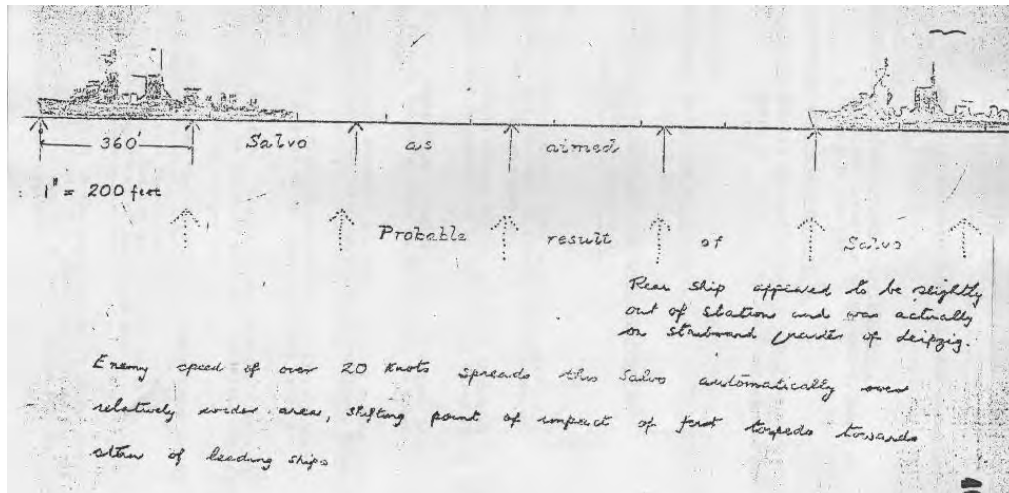 360'   Salvo   as   aimed
1" = 200 feet
Probable   result   of   Salvo
Rear ship appeared to be slightly
out of station and was actually
on starboard quarter of Leipzig.
Enemy speed of over 20 knots spreads this salvo automatically over
relatively wider area, shifting point of impact of first torpedo towards
stern of leading ships